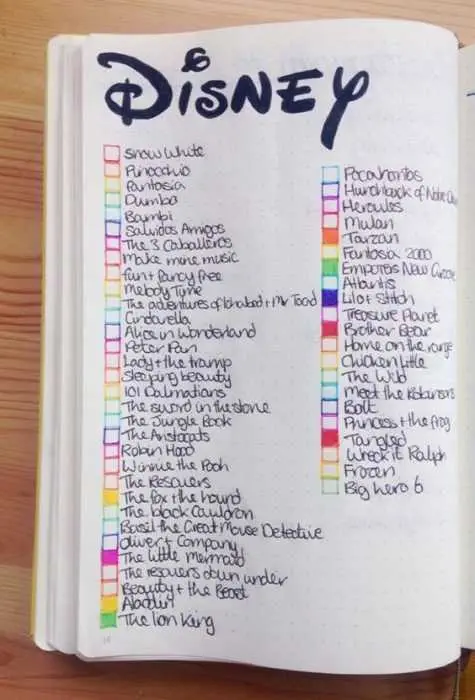 Disney
Snow White
Pinocchio
Fantasia
Dumbo
Bambi
Saludos Amigos
The 3 Caballeros
Make mine music
Fun + Fancy free
Melody Time
The adventures of Ichabod + Mr Toad
Cinderella
Alice in Wonderland
Peter Pan
Lady + the tramp
Sleeping beauty
101 Dalmatians
The sword in the stone
The Jungle Book
The Aristocats
Robin Hood
Winnie the Pooh
The Rescuers
The fox + the hound
The black Cauldron
Basil the Great Mouse Detective
Oliver + Company
The little mermaid
The rescuers down under
Beauty + the Beast
Aladdin
The lion King
Pocahontas
Hunchback of Notre
Hercules
Mulan
Tarzan
Fantasia 2000
Emperors New Groove
Atlantis
Lilo + Stitch
Treasure Planet
Brother Bear
Home on the range
Chicken little
The Wild
Meet the Robinsons
Bolt
Princess + the frog
Tangled
Wreck it Ralph
Frozen
Big hero 6